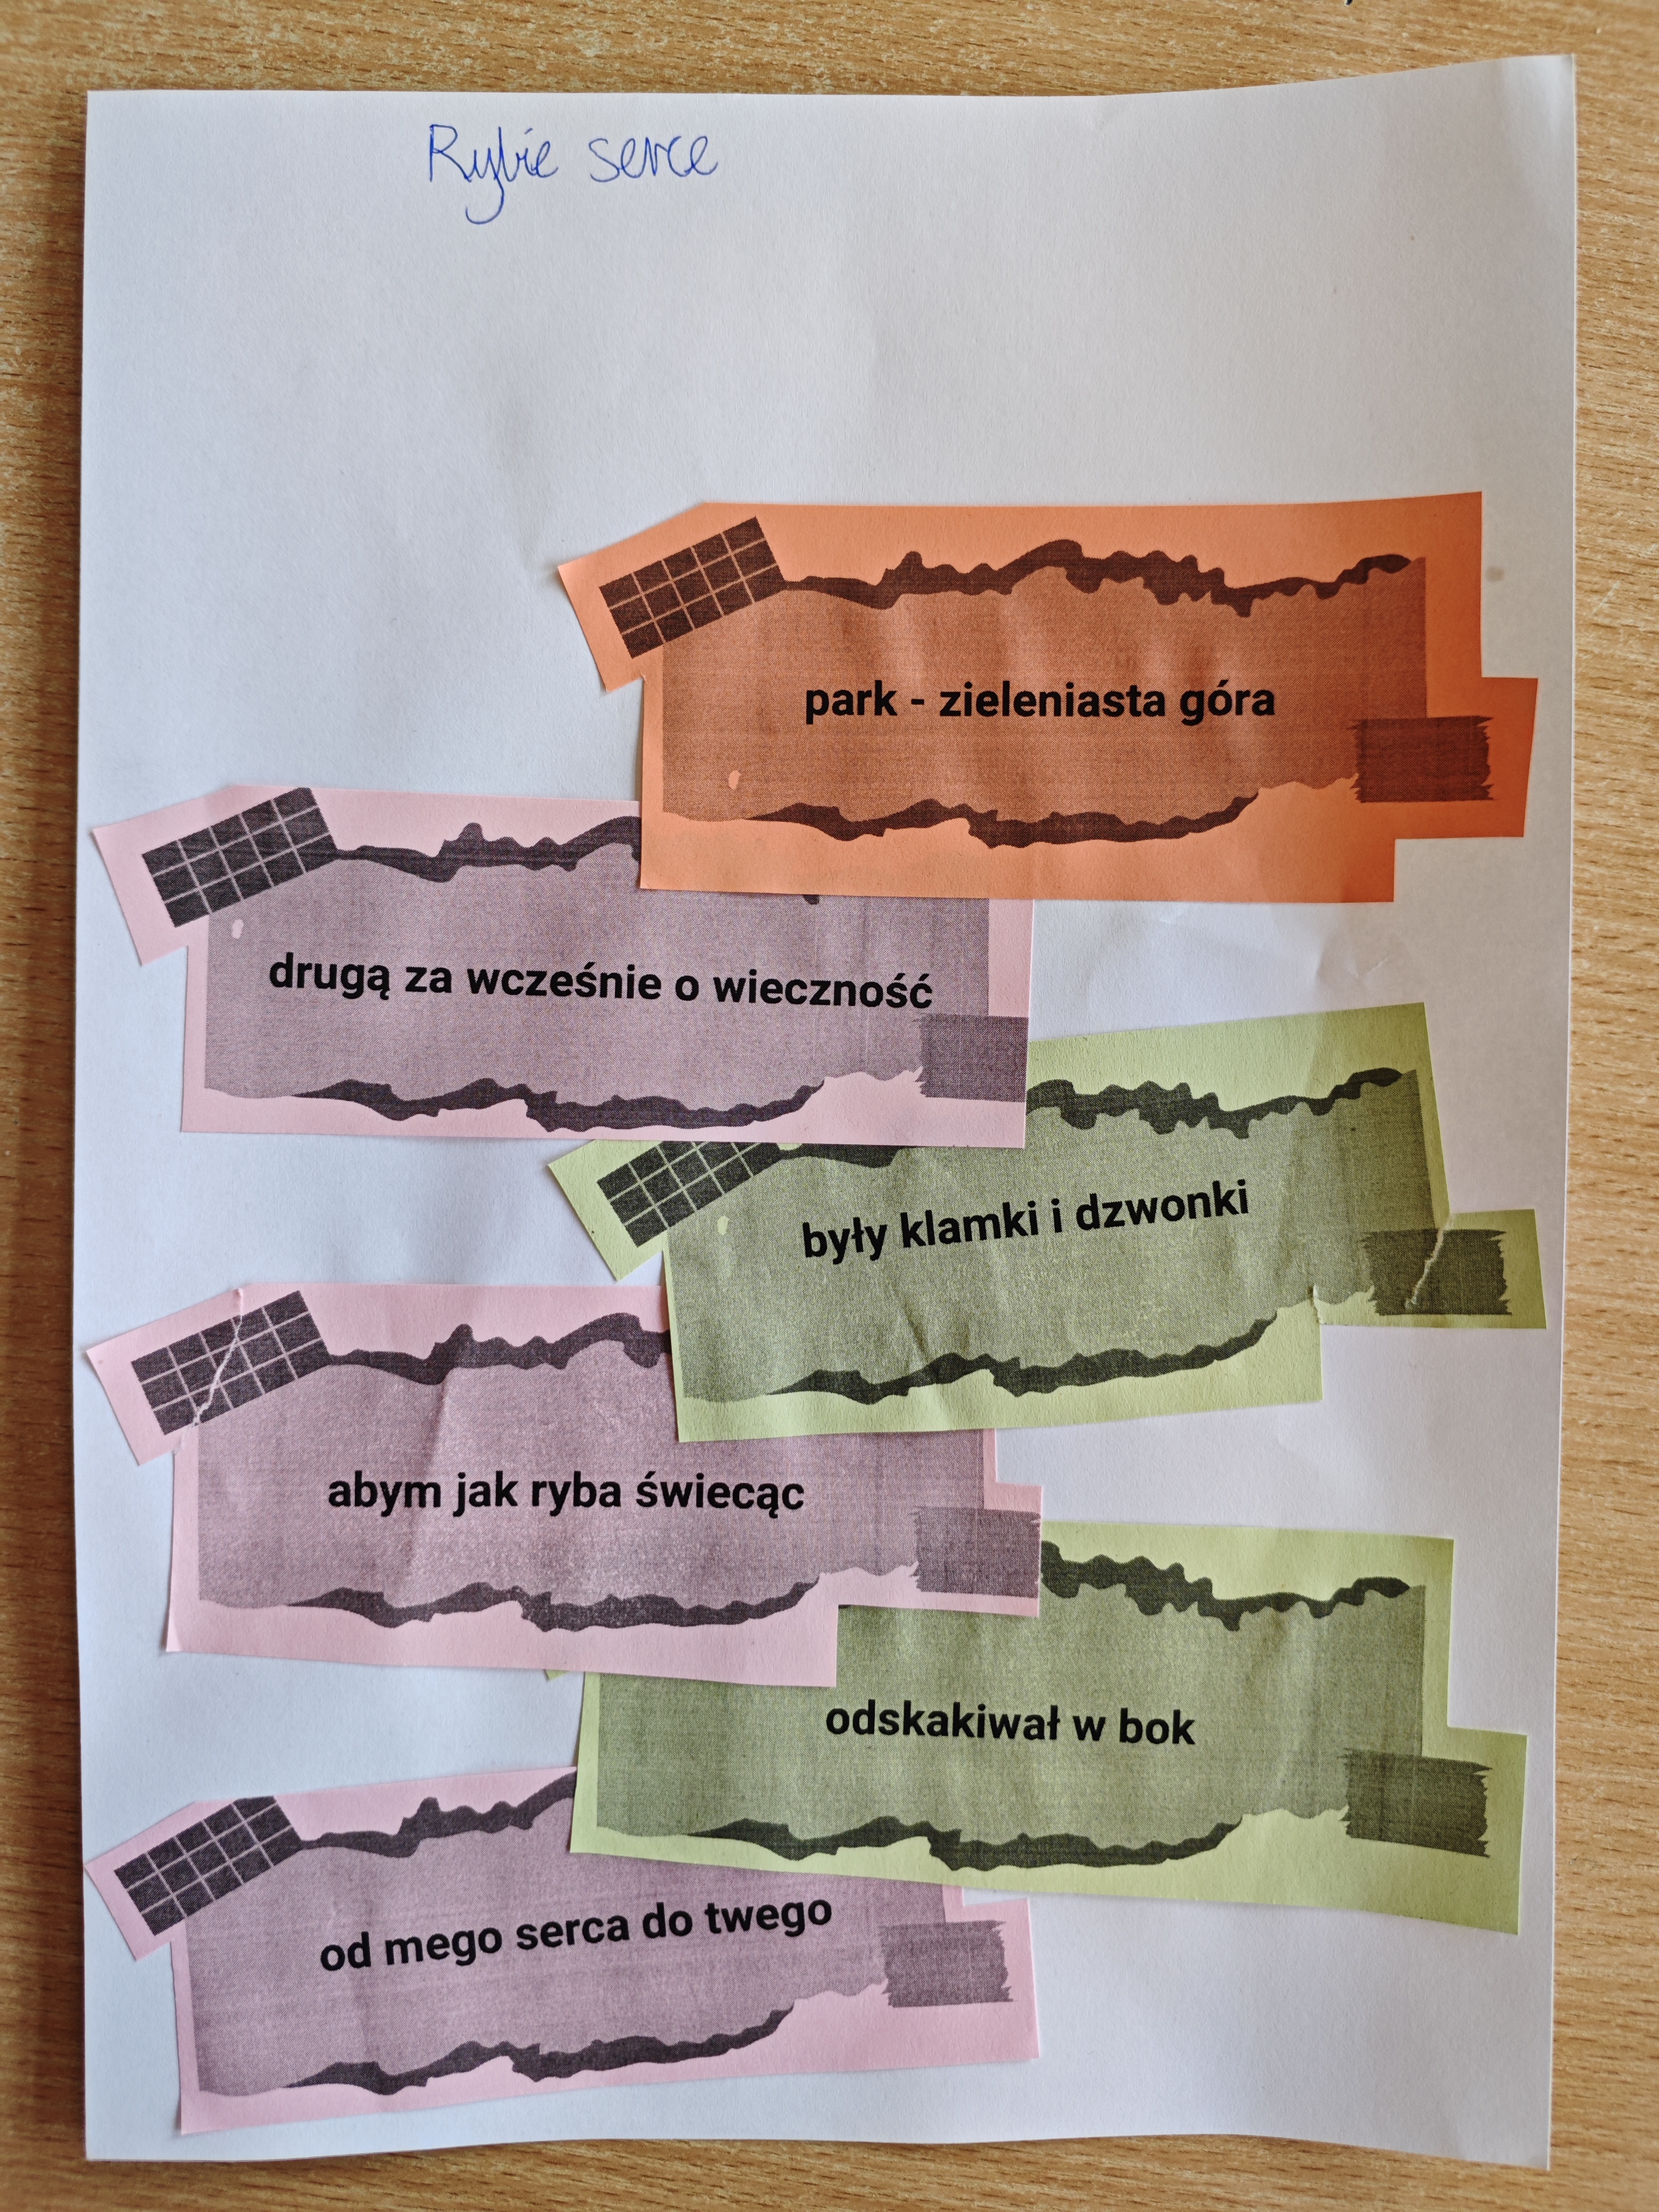 Rybie serce
park - zieleniasta góra
drugą za wcześnie o wieczność
były klamki i dzwonki
abym jak ryba świecąc
odskakiwał w bok
od mego serca do twego